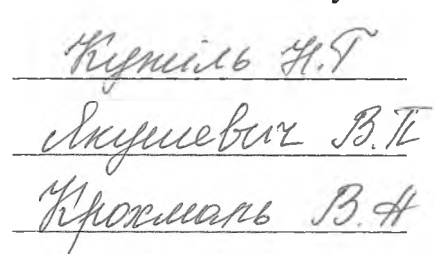 Кужіль Н.Г
Якушевич В.П
Крохмань В.Н